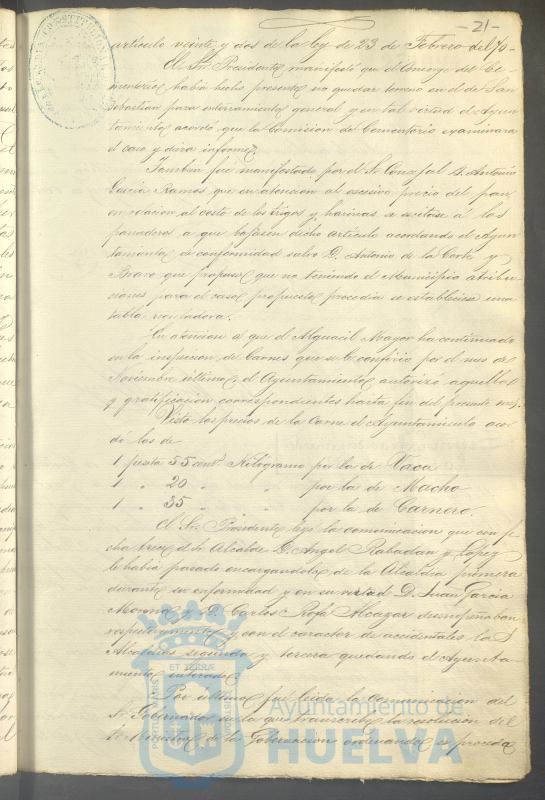 -21-
artículo veinte y dos de la ley de 23 de Febrero del 70-
El Sr. Presidente manifestó que el Conserge del Ce-
menterio había hecho presente no quedar terreno en el de San
Sebastian para enterramiento general y en tal virtud el Ayun-
tamiento acordó que la Comision del Cementerio examinara
el caso y diera informe.
Tambien fué manifestado por el Sr. Concejal D. Antonio
Garcia Ramos que en atencion al escesivo precio del pan
en relacion al costo de los trigos y harinas se escitase á los
panaderos a que bajasen dicho artículo acordando el Ayun-
tamiento de conformidad salvo D. Antonio de la Corte y
Bravo que propuso que no teniendo el Municipio atribu-
ciones para el caso propuesto procedia se estableciese una
tabla reguladora.
En atencion á que el Alguacil Mayor ha continuado
en la inspeccion de Carnes que se le confirió por el mes de
Noviembre último el Ayuntamiento autorizó aquella
y gratificacion correspondientes hasta fin del presente mes.
Visto los precios de la Carne el Ayuntamiento acor-
dó los de
1 peseta 55 cent. Kilógramo por la de Vaca
1 " 20 " " por la de Macho
1 " 35 " " por la de Carnero.
El Sr. Presidente leyó la comunicacion que con fe-
cha trece el Sr. Alcalde D. Angel Rabadan y Lopez
le habia pasado encargandole de la Alcaldia primera
durante su enfermedad y en su virtud D. Juan Garcia
Moreno y D. Carlos Rofa Alcazar desempeñaban
respectivamente y con el caracter de accidentales las
Alcaldias segunda y tercera quedando el Ayunta-
miento enterado.
Por último fué leida la Comunicacion del
Sr. Gobernador en la que transcribe la resolucion del
Sr. Ministro de la Gobernacion ordenando se proceda
PORTUS MARIS
ET TERRAE
CUSTODIA
Ayuntamiento de
HUELVA